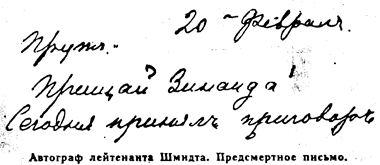 20 - Февраля.
Прощай Зинаида!
Сегодня принялъ приговоръ
Автограф лейтенанта Шмидта. Предсмертное письмо.